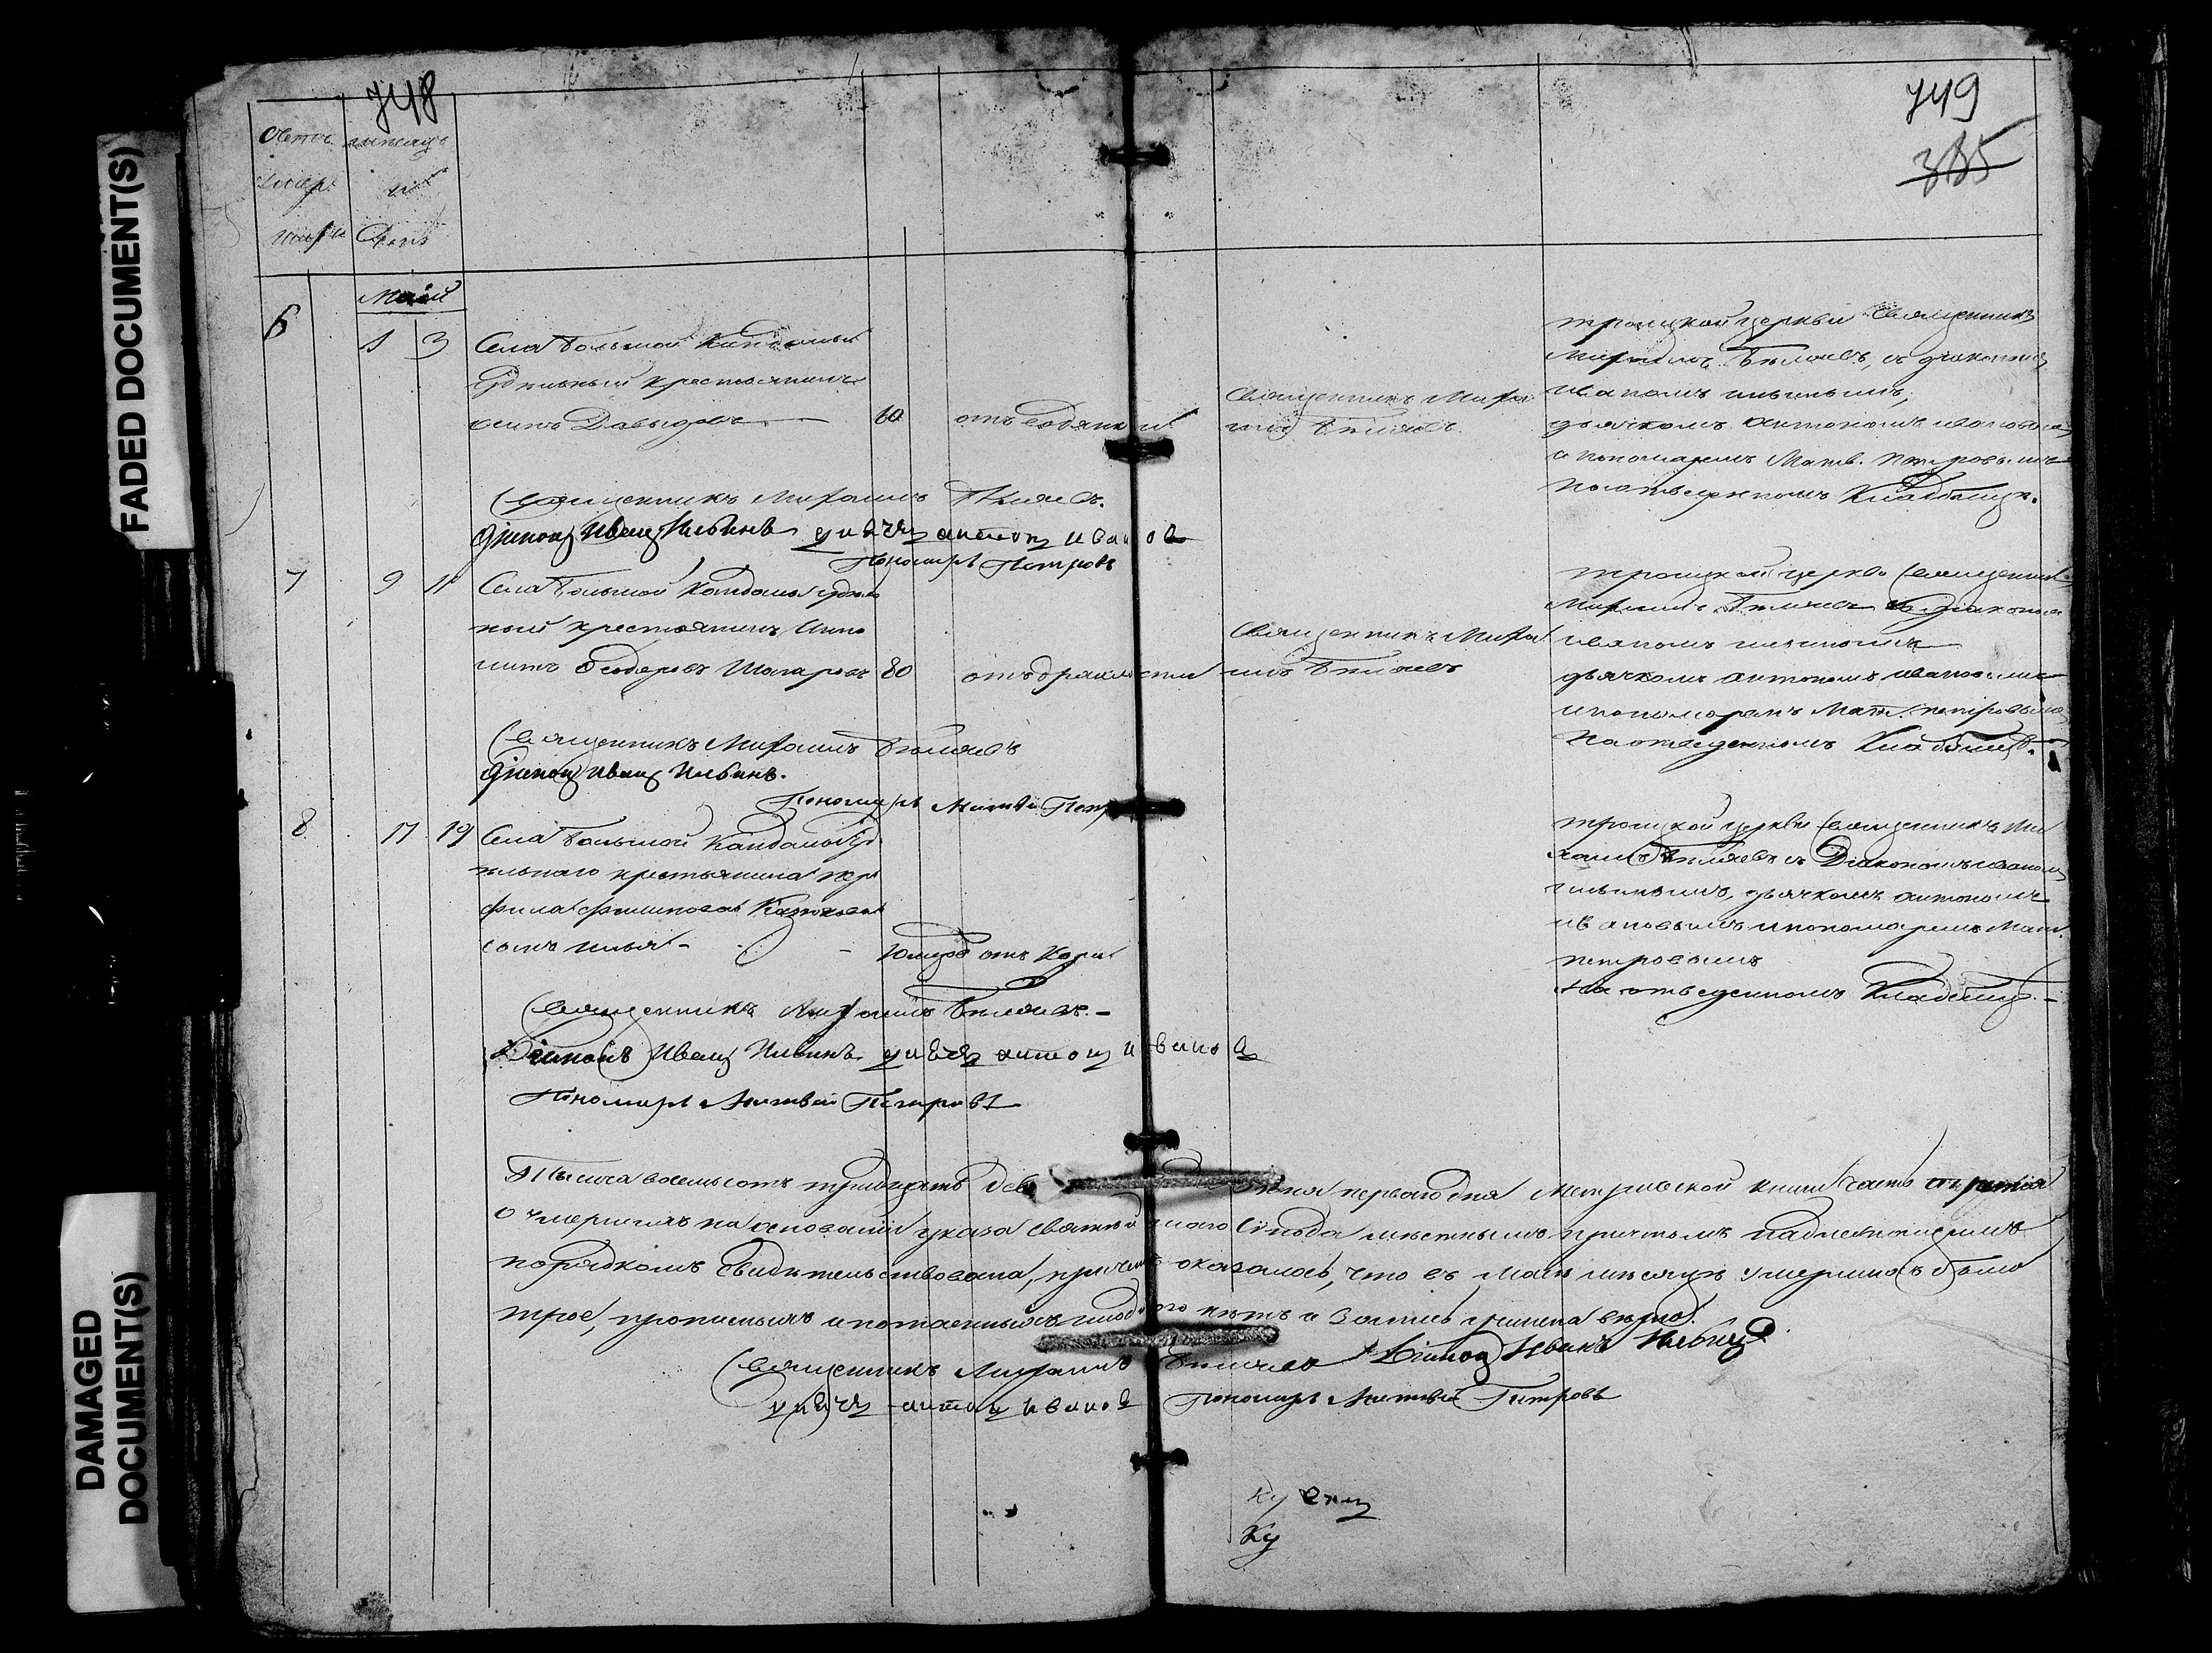 FADED DOCUMENT(S)
DAMAGED
DOCUMENT(S)
748
Счетъ
умер
шихъ
мѣсяцъ
и
День
749
385
Маій
6
1 3
Села Большой Кандалы
удѣльный крестьянинъ
осипъ Давыдовъ
60
отъ водянки
Священникъ Миха
илъ Бѣляевъ
троицкой церкви Священникъ
Михаилъ Бѣляевъ, съ діакономъ
иваномъ ильинымъ,
дьячкомъ антономъ ивановымъ
и пономаремъ Матв. петровымъ
на отведенномъ Кладбищѣ.
Священникъ Михаилъ Бѣляевъ.
Діаконъ Иванъ Ильинъ дьячекъ антонъ иванов
Пономарь Петровъ
7
9 11
Села Большой Кандалы удѣль
ной крестьянинъ
Феодоровъ
80
отъ дряхлости
Священникъ Миха
илъ Бѣляевъ
троицкой церкви Священникъ
Михаилъ Бѣляевъ съ діакономъ
иваномъ ильиномъ
дьячкомъ антономъ ивановымъ
и пономоремъ Мат. петровымъ
На отведенномъ Кладбищѣ.
Священникъ Михаилъ Бѣляевъ
Діаконъ Иванъ Ильинъ.
Пономарь Матвѣй Петр
8
17 19
Села Большой Кандалы уд
ѣльнаго крестьянина
филипова
сынъ илья
отъ Кори
троицкой церкви Священникъ Ми
хаилъ Бѣляевъ съ Діакономъ иваномъ
ильинымъ, дьячкомъ антономъ
ивановымъ и пономаремъ Мат.
петровымъ
На отведенномъ Кладбищѣ.
Священникъ Михаилъ Бѣляевъ.
Діаконъ Иванъ Ильинъ дьячекъ антонъ иванов
Пономарь Матвей Петровъ
Тысяча восемьсотъ тридцать дев іюня перваго дня Метрической книги часть третія
о умершихъ на основаніи указа Святѣйшаго Сѵнода мѣстнымъ причтомъ надлежащимъ
порядкомъ свидѣтельствована, причемъ оказалось, что въ Маѣ мѣсяцѣ умершихъ было
трое, и никого нѣтъ и вѣрно.
Священникъ Михаилъ Бѣляевъ Діаконъ Иванъ Ильинъ
дьячекъ антонъ иванов Пономарь Матвѣй Петровъ
Ку
Ку